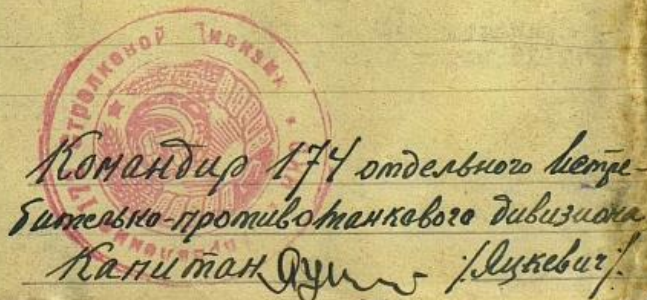 Стрелковой Дивизии
Командир 174 отдельного истре-
бительно-противотанкового дивизиона
Капитан /Яцкевич/.